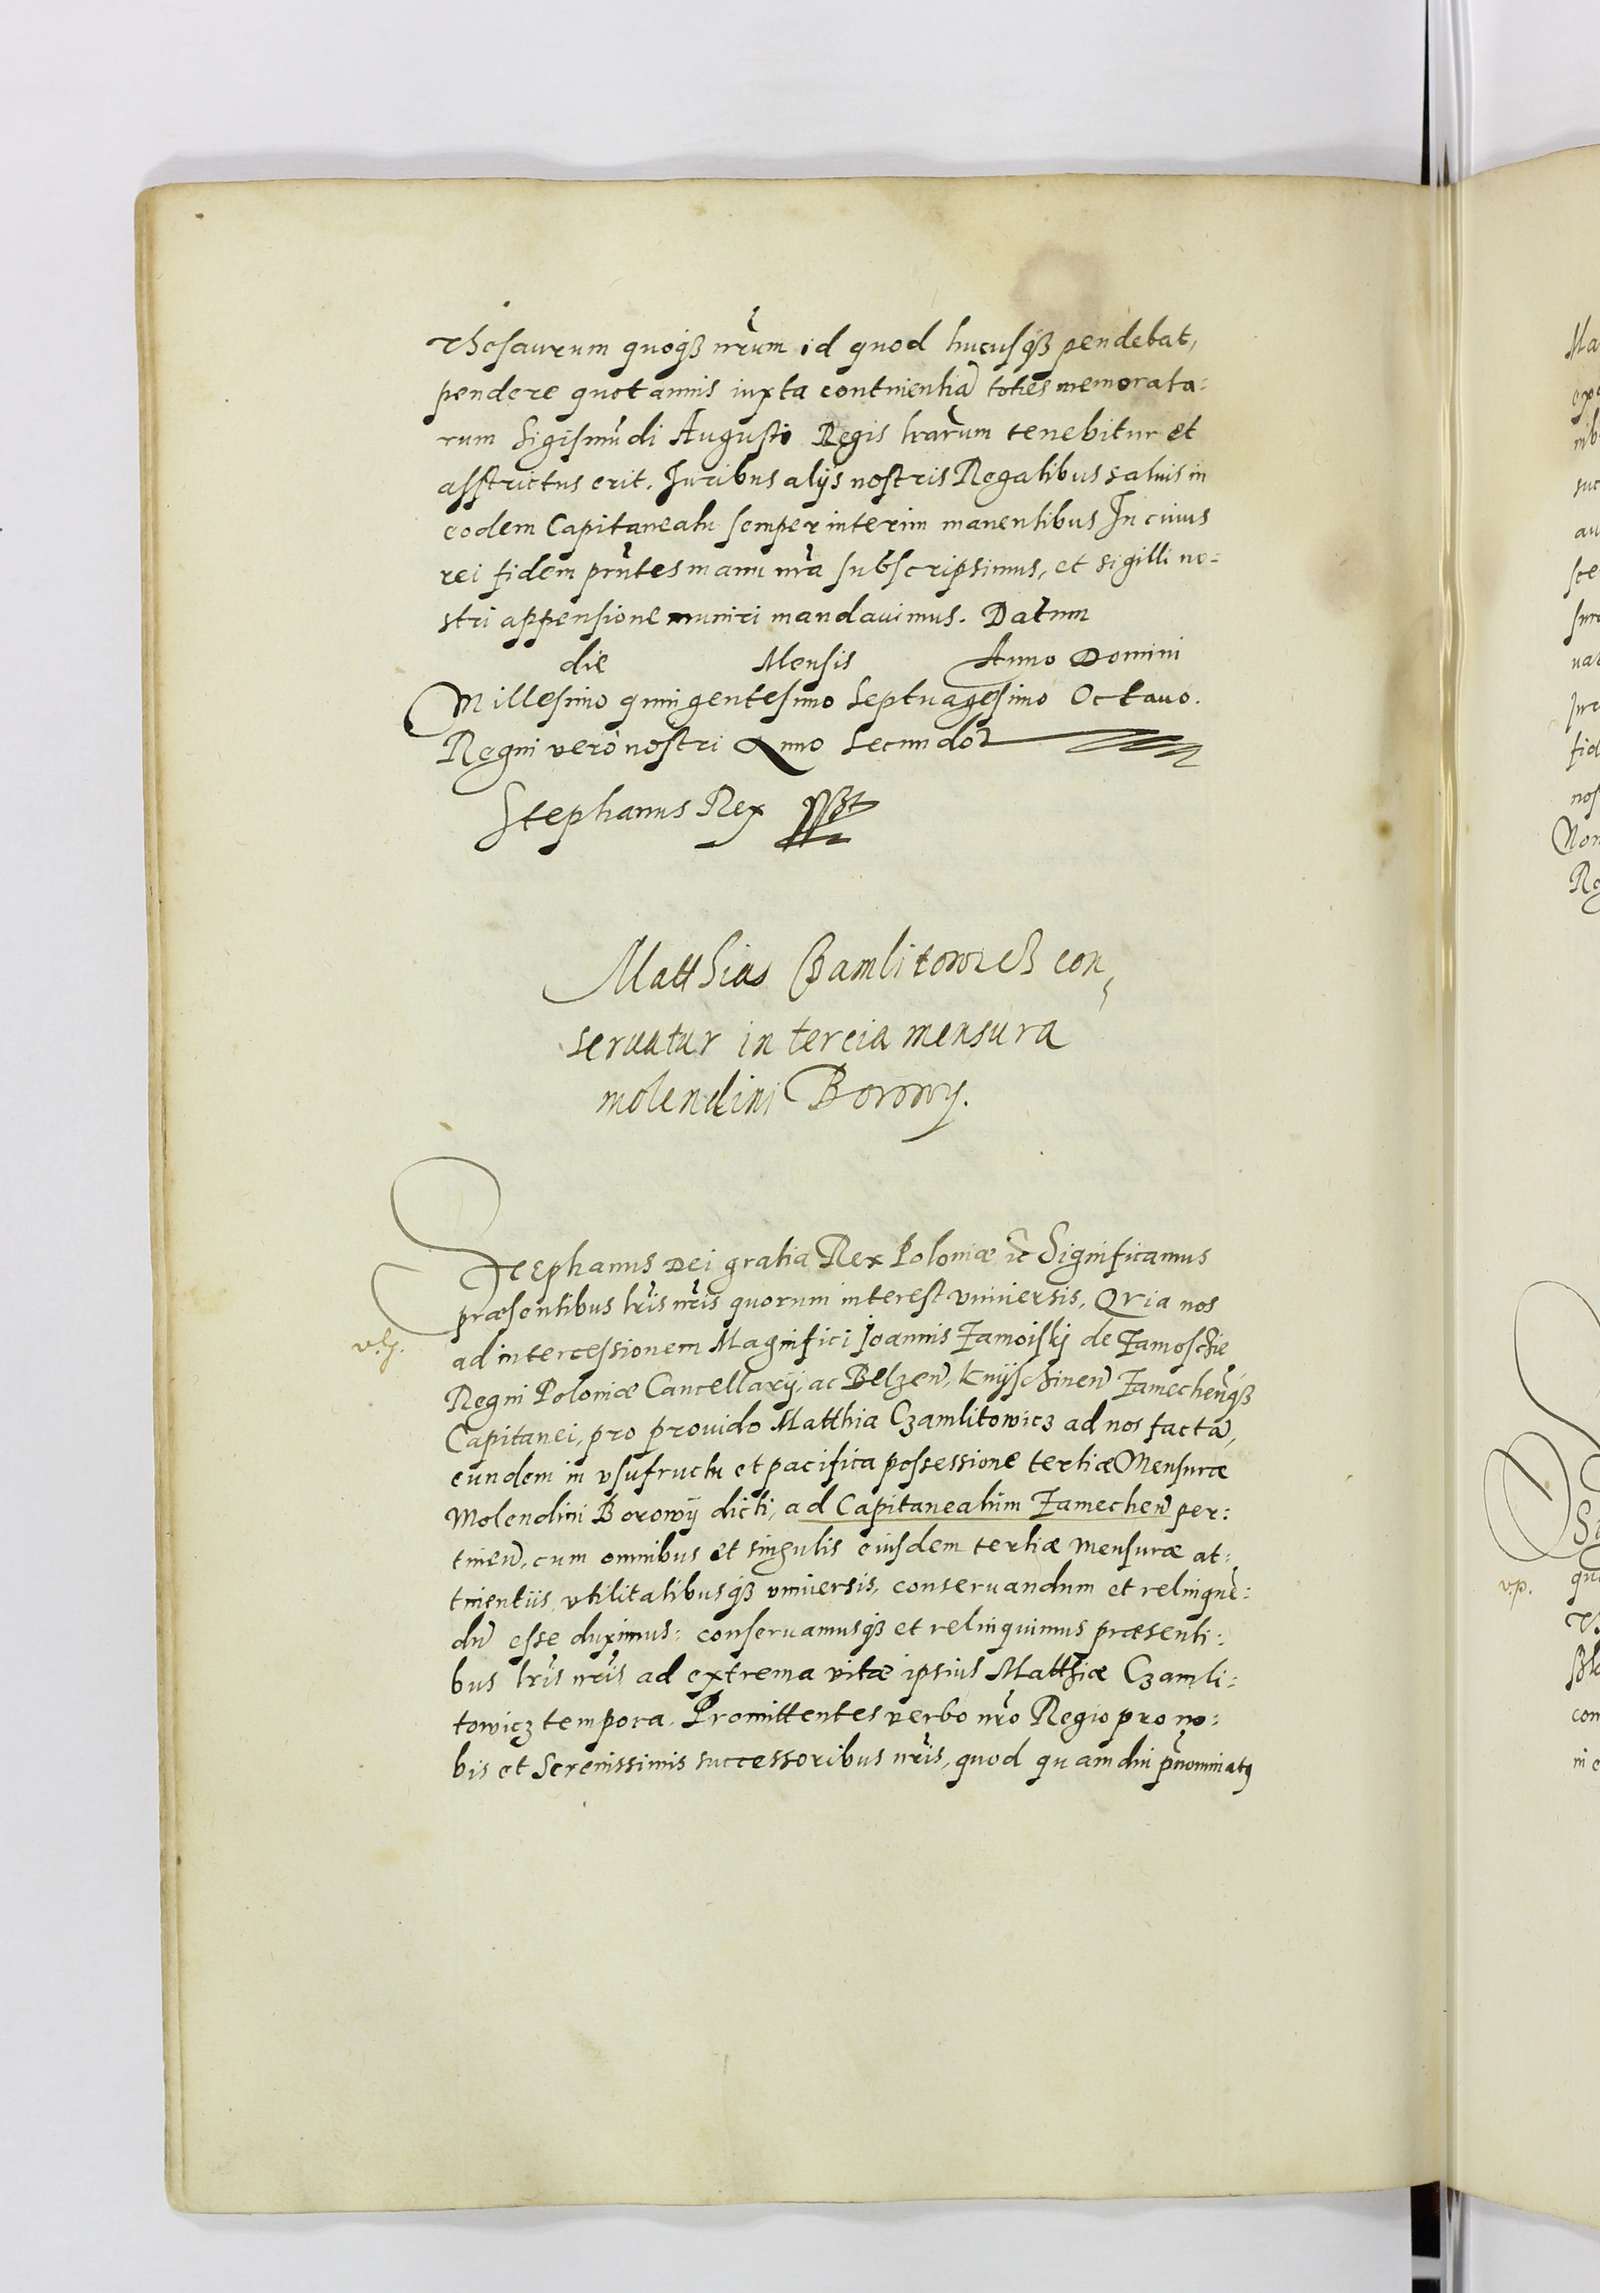 Thesaurum quoqȝ nr̃um id quod hucusqȝ pendebat,
pendere quotannis iuxta continentiã toties memorata:
rum Sigismũdi Augusti Regis lr̃arum tenebitur et
asstrictus erit. Juribus alijs nostris Regalibus saluis in
eodem Capitaneatu semper interim manentibus In cuius
rei fidem prñtes manu nr̃a subscripsimus, et sigilli no-
stri appensione muniri mandauimus. Datum
die Mensis Anno Domini
Millesimo quingentesimo Septuagesimo Octauo.
Regni verò nostri Anno Secundo
Stephanus Rex
Matthias Czamlitowicz con,
seruatur in tercia mensura
molendini Borowy.
Stephanus Dei gratia Rex Poloniæ ac̃ Significamus
præsentibus lr̃is nr̃is quorum interest vniuersis, Quia nos
ad intercessionem Magnifici Joannis Zamoiskj de Zamoschie
Regni Poloniæ Cancellarij, ac Belzeñ, Knijschineñ Zamecheñqȝ
Capitanei, pro prouido Matthia Czamlitowicz ad nos factã,
eundem in vsufructu et pacifica possessione tertiæ Mensuræ
Molendini Borowij dicti, ad Capitaneatum Zamecheñ per:
tineñ, cum omnibus et singulis eiusdem tertiæ mensuræ at:
tinentiis, vtilitatibusqȝ vniuersis, conseruandum et relinquẽ:
dũ esse duximus: conseruamusqȝ et relinquimus præsenti:
bus lr̃is nr̃is ad extrema vitæ ipsius Matthiæ Czamli:
towicz tempora. Promittentes verbo nr̃o Regio pro no:
bis et Serenissimis successoribus nr̃is, quod quamdiu p̃nominatꝰ